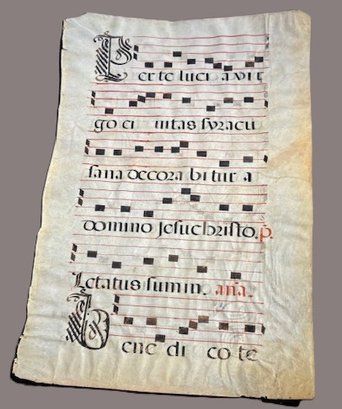 Per te luci a vir
go ci uitas syracu
sana decora bitur a
domino Jesu christo. p.
Letatus sum in. ana.
Bene di co te